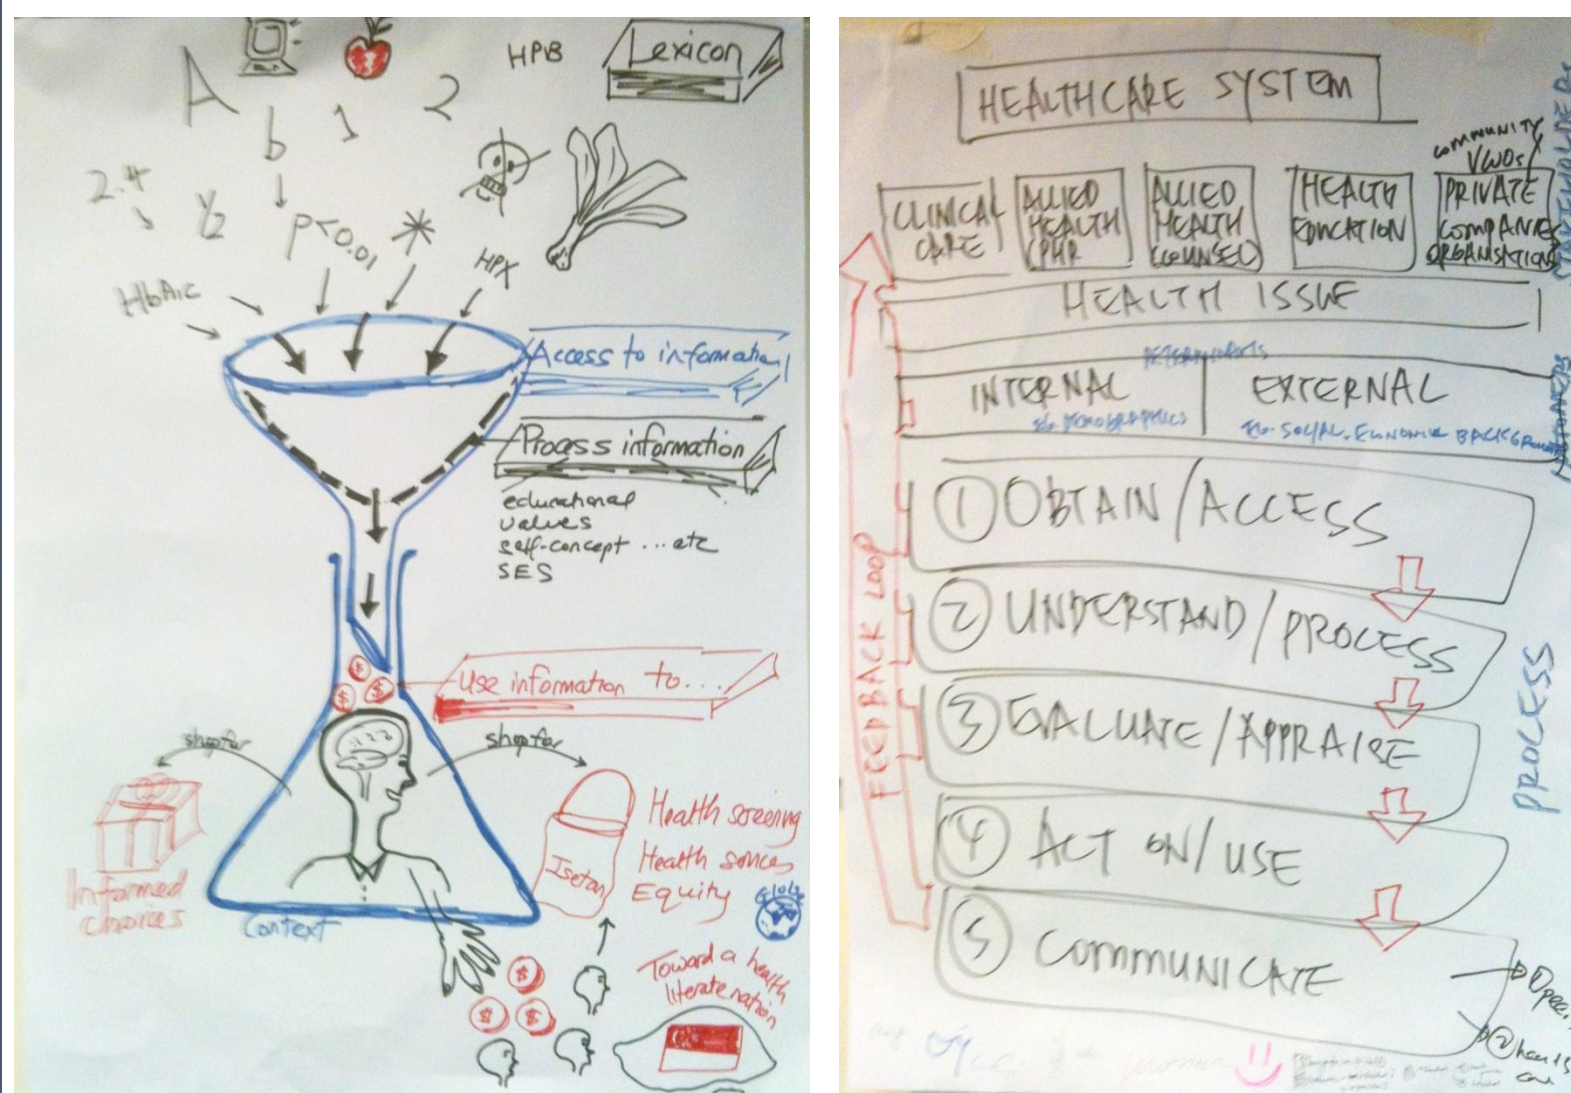 HPB
Lexicon
A
b
1
2
2.4
1/2
p<0.01
*
HPX
HbA1c
Access to information
Process information
educational
values
self-concept ... etc
SES
Use information to...
shop for
shop for
Informed
choices
Isetan
Health screening
Health services
Equity
Globe
Context
$
$
$
$
$
$
Toward a health
literate nation
HEALTHCARE SYSTEM
COMMUNITY
VWOs/
CLINICAL
CARE
ALLIED
HEALTH
ALLIED
HEALTH
(COUNSEL)
HEALTH
EDUCATION
PRIVATE
COMPANIES
ORGANISATIONS
STAKEHOLDERS
HEALTH ISSUE
DETERMINANTS
INTERNAL
EG. DEMOGRAPHICS
EXTERNAL
EG. SOCIAL, ECONOMIC BACKGROUND
FEEDBACK LOOP
① OBTAIN/ACCESS
② UNDERSTAND/PROCESS
③ EVALUATE/APPRAISE
④ ACT ON/USE
⑤ COMMUNICATE
PROCESS
①
②